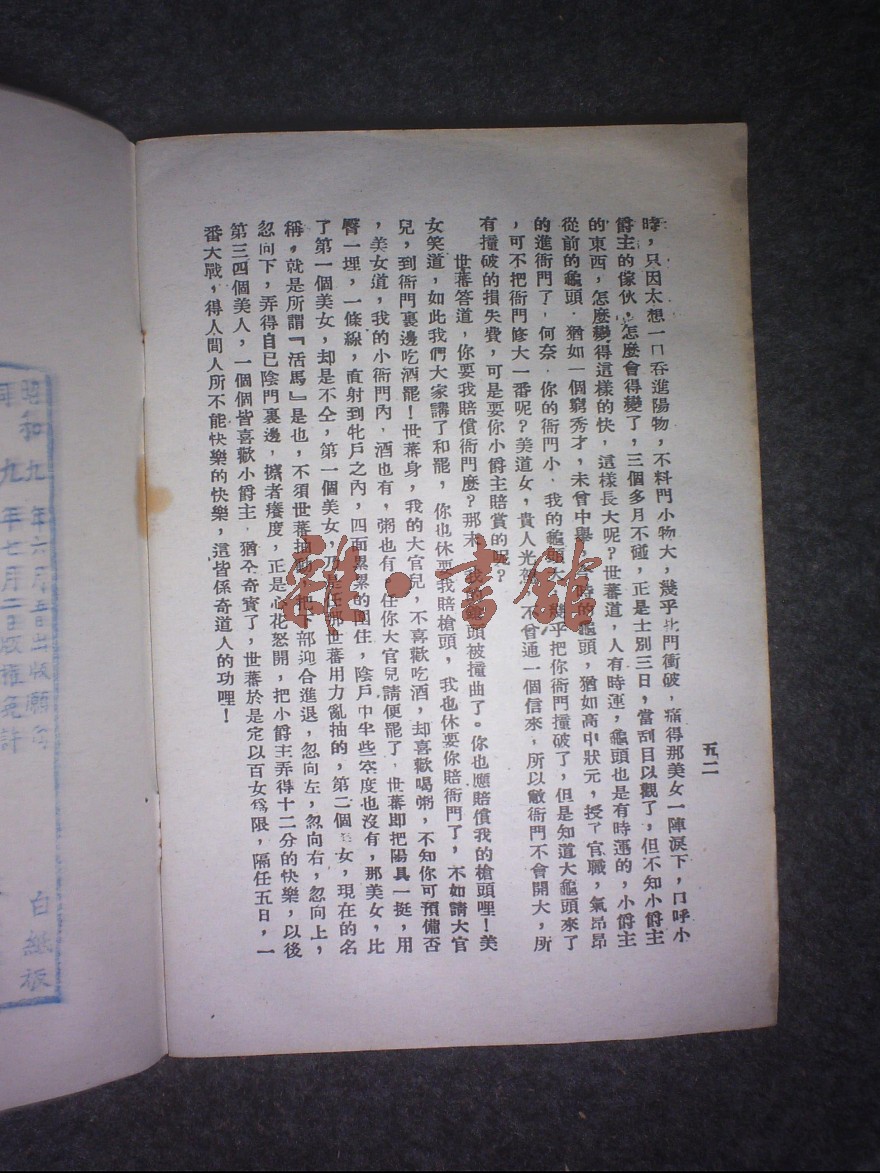 五二
時，只因太想一口吞進陽物，不料門小物大，幾乎牝門衝破，痛得那美女一陣淚下，口呼小
爵主的傢伙，怎麼會得變了，三個多月不碰，正是士別三日，當刮目以觀了，但不知小爵主
的東西，怎麼變得這樣的快，這樣長大呢？世蕃道，人有時運，龜頭也是有時運的，小爵主
從前的龜頭．猶如一個窮秀才，未曾中舉，時的龜頭，猶如高中狀元，授了官職，氣昂昂
的進衙門了．何奈．你的衙門小．我的龜頭大．幾乎把你衙門撞破了，但是知道大龜頭來了
，可不把衙門修大一番呢？美道女，貴人光，不曾通一個信來，所以敝衙門不會開大，所
有撞破的損失費，可是要你小爵主賠賞的呢？
世蕃答道，你要我賠償衙門麼？那末，我的龜頭被撞曲了。你也應賠償我的槍頭哩！美
女笑道，如此我們大家講了和罷，你也休要我賠槍頭，我也休要你賠衙門了，不如請大官
兒，到衙門裏邊吃酒罷！世蕃身，我的大官兒，不喜歡吃酒，却喜歡喝粥，不知你可預備否
，美女道，我的小衙門內，酒也有，粥也有，任你大官兒請便罷了，世蕃即把陽具一挺，用
臀一埋，一條線，直射到牝戶之內，四面累累的圍住，陰戶中半些空度也沒有，那美女，比
了第一個美女，却是不仝，第一個美女，乃是任那世蕃用力亂抽的，第二個美女，現在的名
稱，就是所謂『活馬』是也，不須世蕃抽動，把部迎合進退，忽向左，忽向右，忽向上，
忽向下，弄得自己陰門裏邊，搽者癢度，正是心花怒開，把小爵主弄得十二分的快樂，以後
第三四個美人，一個個皆喜歡小爵主．猶仝奇寶了，世蕃於是定以百女為限，隔任五日，一
番大戰，得人間人所不能快樂的快樂，這皆係奇道人的功哩！
雜·書館
白紙板
昭和九年六月五日出版願
九年七月二日版權免許